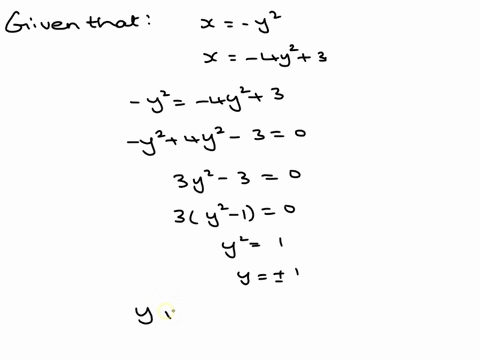 Given that: x = -y²
x = -4y²+3
-y² = -4y²+3
-y²+4y²-3 = 0
3y²-3 = 0
3(y²-1) = 0
y² = 1
y = ±1
y